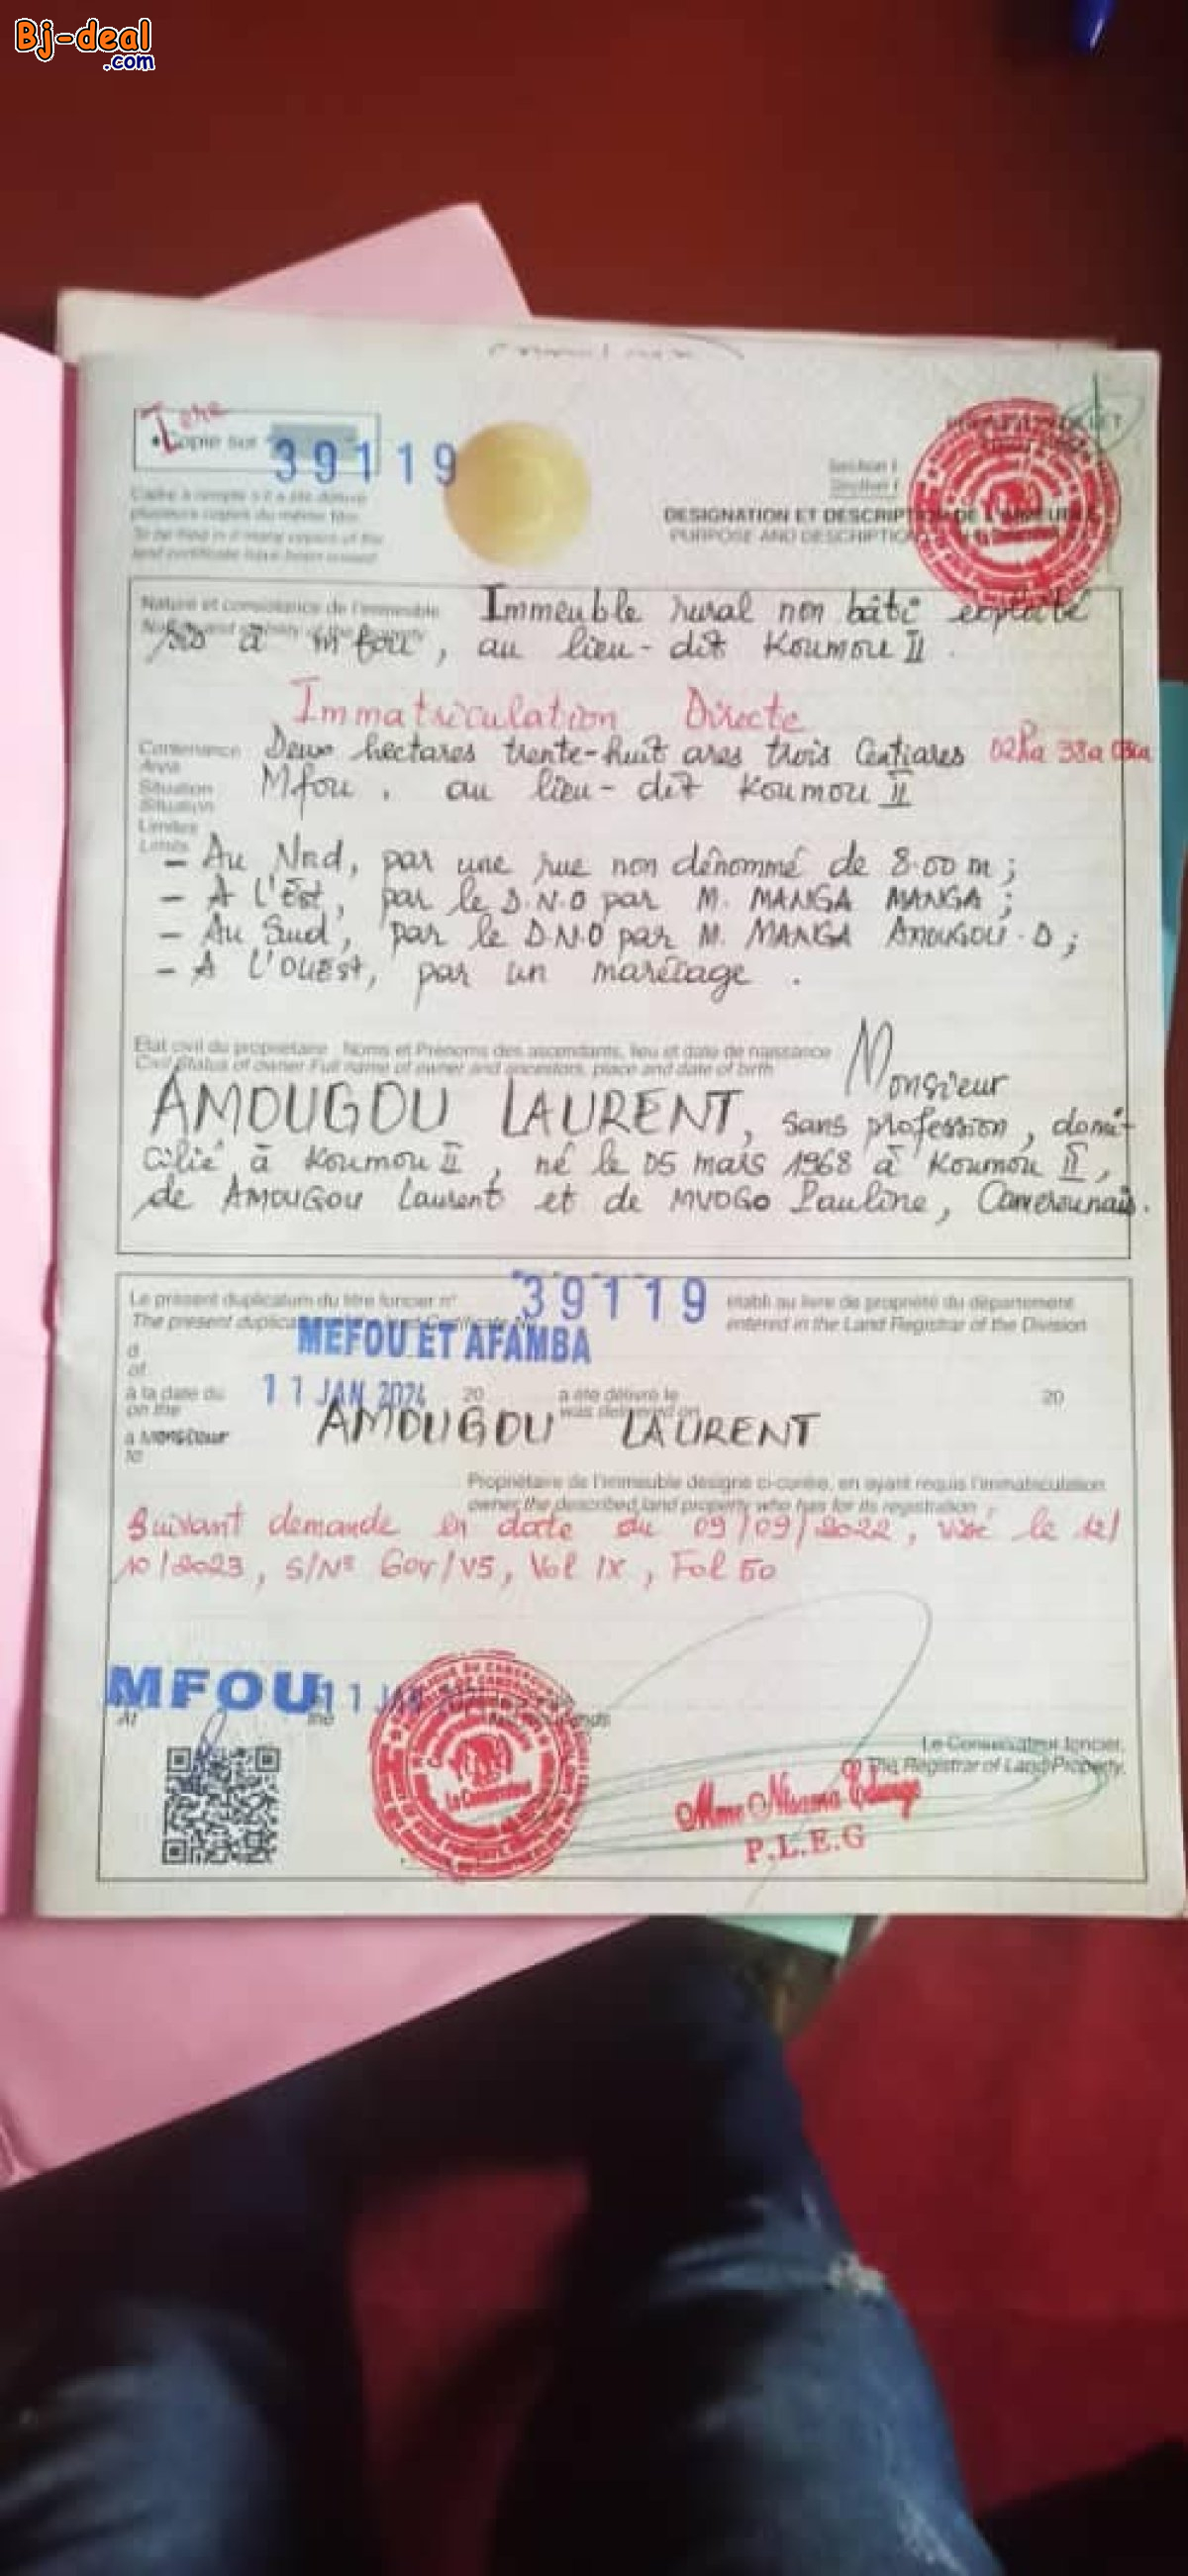 Bj-deal
.com
1ère
Copie sur
39119
Cadre à remplir s'il a été délivré
plusieurs copies du même titre
To be filled in if many copies of the
land certificate have been issued
Section I
Section I
DESIGNATION ET DESCRIPTION DE L'IMMEUBLE
PURPOSE AND DESCRIPTION
Nature et consistance de l'immeuble
Immeuble rural non bâti exploité
sis à Mfou, au lieu-dit Koumou II.
Immatriculation Directe
Contenance
Area
Deux hectares trente-huit ares trois Centiares 02ha 38a 03ca
Situation
Situation
Mfou, au lieu-dit Koumou II
Limites
Limits
- Au Nrd, par une rue non dénommé de 8.00 m;
- A l'Est, par le D.N.O par M. MANGA MANGA;
- Au Sud, par le D.N.O par M. MANGA AMOUGOU.D;
- A l'OUEst, par un marécage.
Etat civil du propriétaire: Noms et Prénoms des ascendants, lieu et date de naissance
Civil Status of owner Full name of owner and ancestors, place and date of birth
Monsieur
AMOUGOU LAURENT, sans profession, domi-
cilié à Koumou II, né le 05 mars 1968 à Koumou II,
de AMOUGOU Laurent et de MVOGO Pauline, Camerounais.
Le présent duplicatum du titre foncier n°
39119
établi au livre de propriété du département
The present duplicatum
entered in the Land Registrar of the Division
d
of
MEFOU ET AFAMBA
à la date du
on the
11 JAN 2024
20
a été délivré le
was delivered on
20
à Monsieur
to
AMOUGOU LAURENT
Propriétaire de l'immeuble désigné ci-contre, en ayant requis l'immatriculation
owner the described land property who has for its registration
Suivant demande en date du 09/09/2022, visé le 12/
10/2023, S/N° 60v/V5, Vol IX, Fol 50
MFOU
11 JAN
At
the
Le Conservateur foncier,
The Registrar of Land Property,
Mme
P.L.E.G